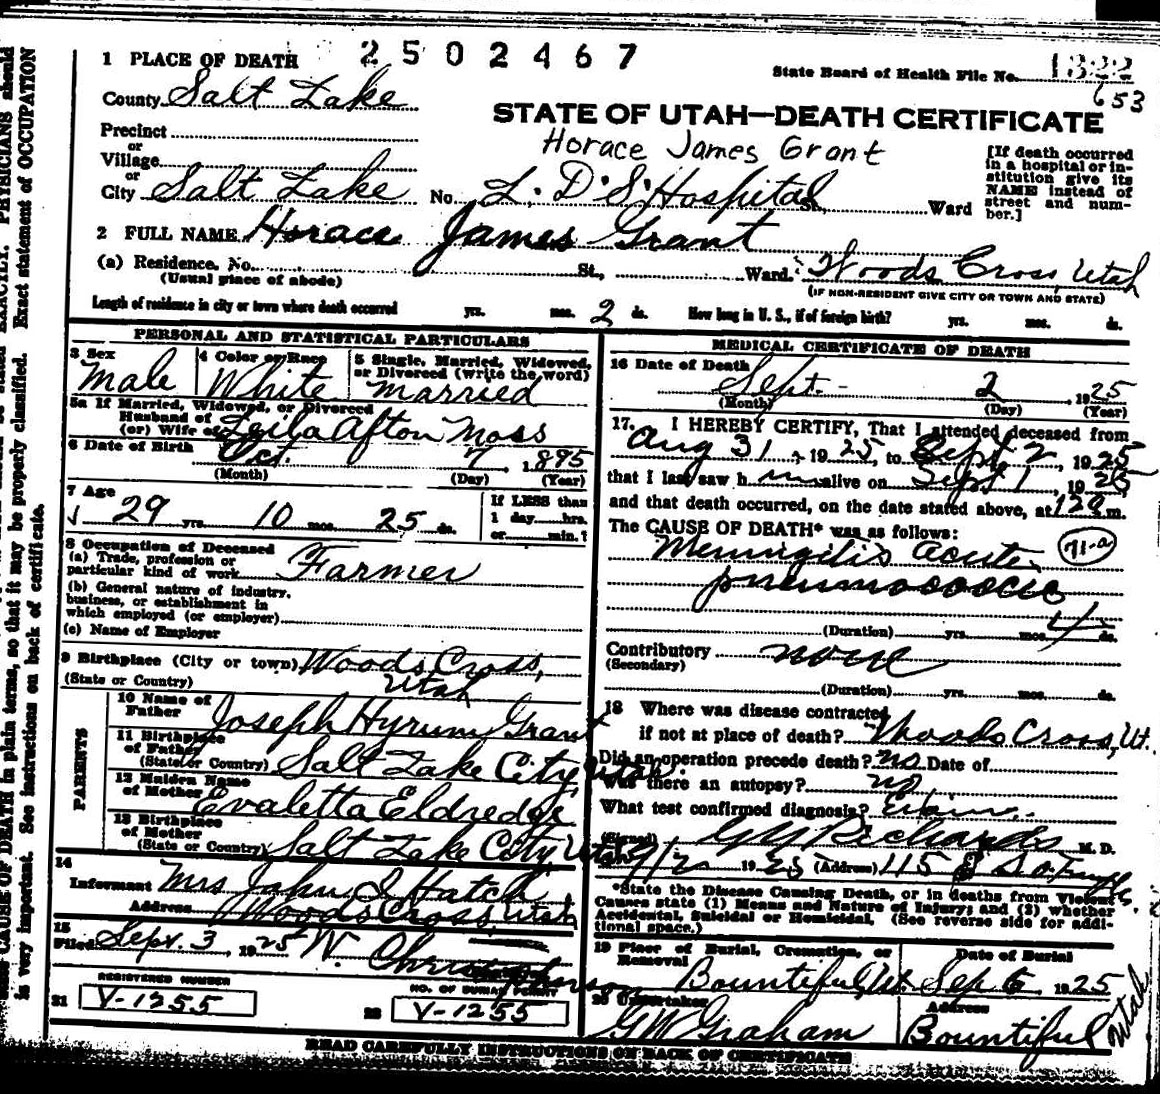 2502467
1 PLACE OF DEATH
State Board of Health File No. 1322
653
County Salt Lake
STATE OF UTAH—DEATH CERTIFICATE
Horace James Grant
Precinct
or
Village
or
City Salt Lake No. L.D.S. Hospital St., Ward
[If death occurred in a hospital or institution give its NAME instead of street and number.]
2 FULL NAME Horace James Grant
(a) Residence. No. St., Ward. Woods Cross, Utah
(Usual place of abode) (IF NON-RESIDENT GIVE CITY OR TOWN AND STATE)
Length of residence in city or town where death occurred yrs. mos. 2 ds. How long in U. S., if of foreign birth? yrs. mos. ds.
PERSONAL AND STATISTICAL PARTICULARS
3 Sex Male
4 Color or Race White
5 Single, Married, Widowed, or Divorced (write the word) married
5a If Married, Widowed, or Divorced
Husband of
(or) Wife of Leila Afton Moss
6 Date of Birth Oct. 7, 1895
(Month) (Day) (Year)
7 Age
29 yrs. 10 mos. 25 ds.
If LESS than
1 day hrs.
or min.?
8 Occupation of Deceased
(a) Trade, profession or
particular kind of work Farmer
(b) General nature of industry,
business, or establishment in
which employed (or employer)
(c) Name of Employer
9 Birthplace (City or town) Woods Cross,
(State or Country) Utah
PARENTS
10 Name of
Father Joseph Hyrum Grant
11 Birthplace
of Father
(State or Country) Salt Lake City Utah.
12 Maiden Name
of Mother Evaletta Eldredge
13 Birthplace
of Mother
(State or Country) Salt Lake City Utah
14
Informant Mrs John I Hatch
Address Woods Cross, Utah
15
Filed Sept. 3, 1925 W. Christopherson
REGISTERED NUMBER
21 V-1255
NO. OF BURIAL PERMIT
22 V-1255
MEDICAL CERTIFICATE OF DEATH
16 Date of Death
Sept. 2, 1925
(Month) (Day) (Year)
17. I HEREBY CERTIFY, That I attended deceased from
Aug 31, 1925, to Sept. 2, 1925
that I last saw him alive on Sept 1, 1925
and that death occurred, on the date stated above, at m.
The CAUSE OF DEATH* was as follows:
Meningitis acute 71-a
pneumococcic
(Duration) yrs. mos. 4 ds.
Contributory none
(Secondary)
(Duration) yrs. mos. ds.
18 Where was disease contracted
if not at place of death? Woods Cross, Ut.
Did an operation precede death? no Date of
Was there an autopsy? no
What test confirmed diagnosis?
(Signed) G G Richards M. D.
9/2 1925 (Address) 115 E So. Temple
*State the Disease Causing Death, or in deaths from Violent
Causes state (1) Means and Nature of Injury; and (2) whether
Accidental, Suicidal or Homicidal. (See reverse side for addi-
tional space.)
19 Place of Burial, Cremation, or
Removal Bountiful, Ut.
Date of Burial
Sep 6 1925
20 Undertaker
G W Graham
Address
Bountiful Utah
READ CAREFULLY INSTRUCTIONS ON BACK OF CERTIFICATE